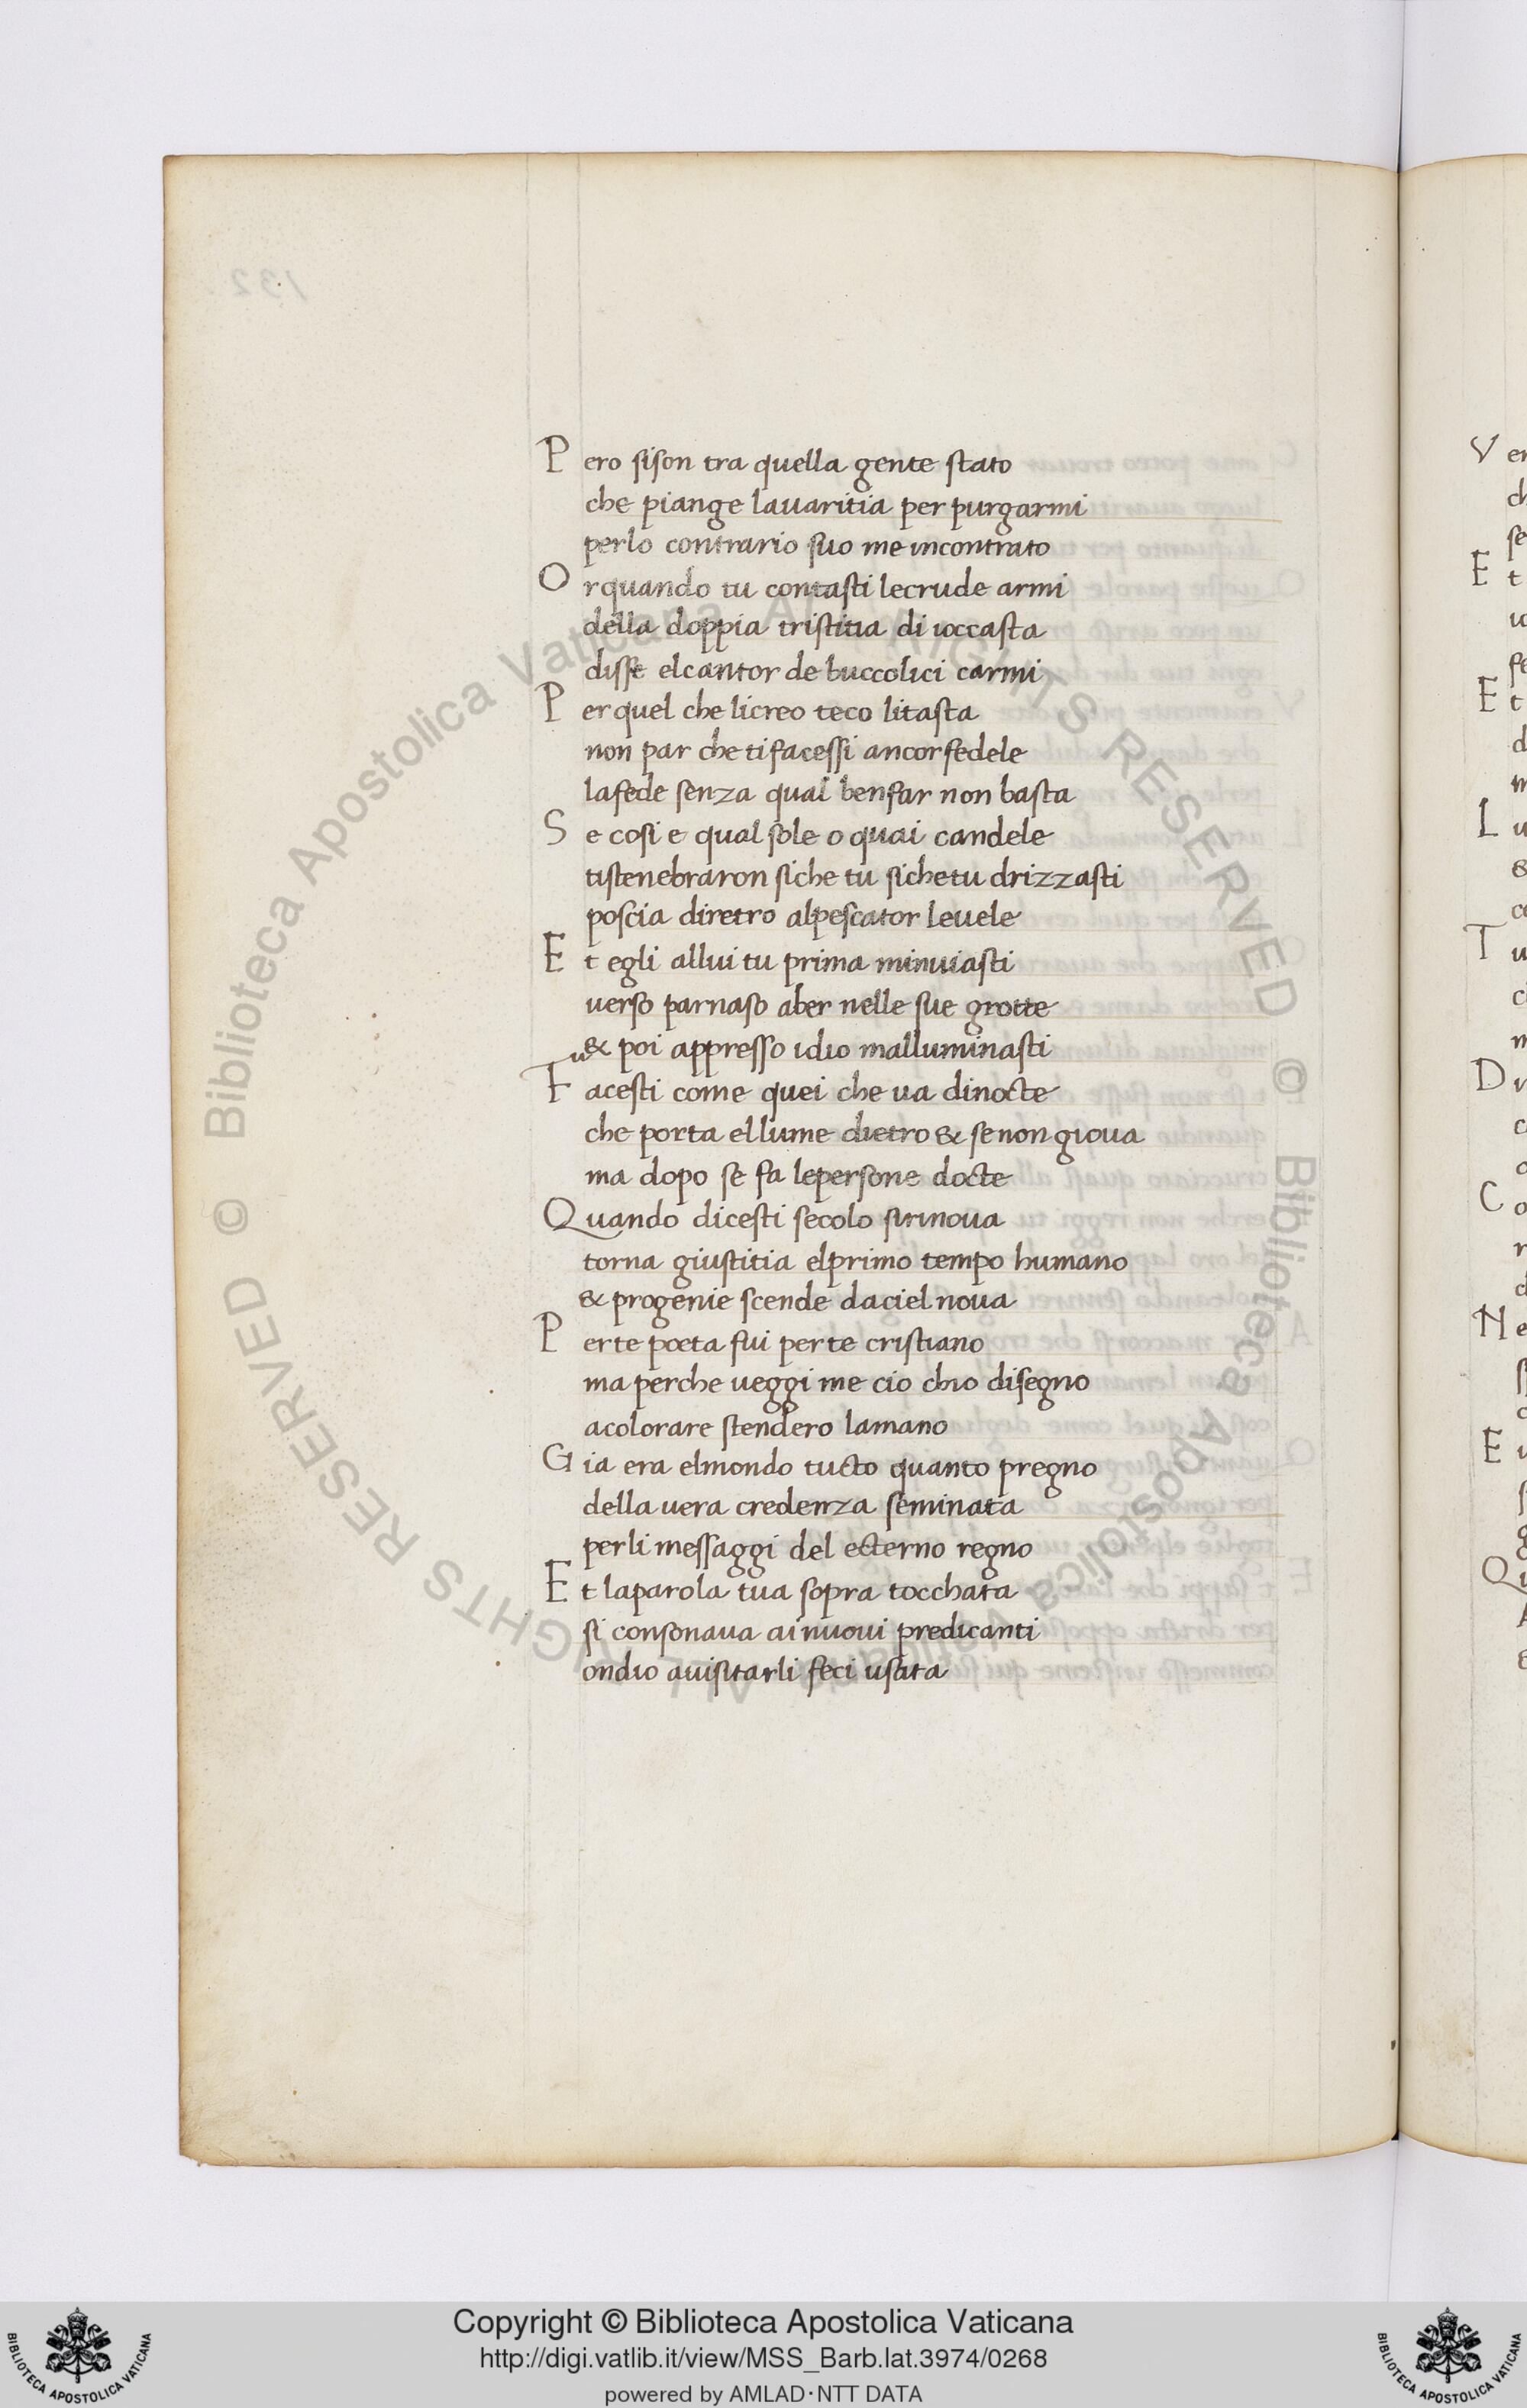 Pero sison tra quella gente stato
che piange lauaritia per purgarmi
perlo contrario suo me incontrato
Orquando tu contasti lecrude armi
della doppia tristitia di ioccasta
disse elcantor de buccolici carmi
Perquel che licreo teco litasta
non par che tifacessi ancorfedele
lafede senza qual benfar non basta
Se cosi e qual sole o quai candele
tistenebraron siche tu sichetu drizzasti
poscia diretro alpescator leuele
Et egli allui tu prima minuiasti
uerso parnaso aber nelle sue grotte
& poi appresso idio malluminasti
Tu
Facesti come quei che ua dinocte
che porta ellume dietro & se non gioua
ma dopo se fa lepersone docte
Quando dicesti secolo sirinoua
torna giustitia elprimo tempo humano
& progenie scende daciel noua
Perte poeta fui per te cristiano
ma perche ueggi me cio chio disegno
acolorare stendero lamano
Gia era elmondo tucto quanto pregno
della uera credenza seminata
perli messaggi del ecterno regno
Et laparola tua sopra tocchata
si consonaua ai nuoui predicanti
ondio auisitarli feci usata
132
V er
ch
se
E t
E t
d
m
L u
&
co
T u
c
m
D i
c
C o
r
d
N e
E
Qu
Biblioteca Apostolica Vaticana ALL RIGHTS RESERVED ©
Biblioteca Apostolica Vaticana ALL RIGHTS RESERVED ©
Copyright © Biblioteca Apostolica Vaticana
http://digi.vatlib.it/view/MSS_Barb.lat.3974/0268
powered by AMLAD·NTT DATA
BIBLIOTECA APOSTOLICA VATICANA
BIBLIOTECA APOSTOLICA VATICANA